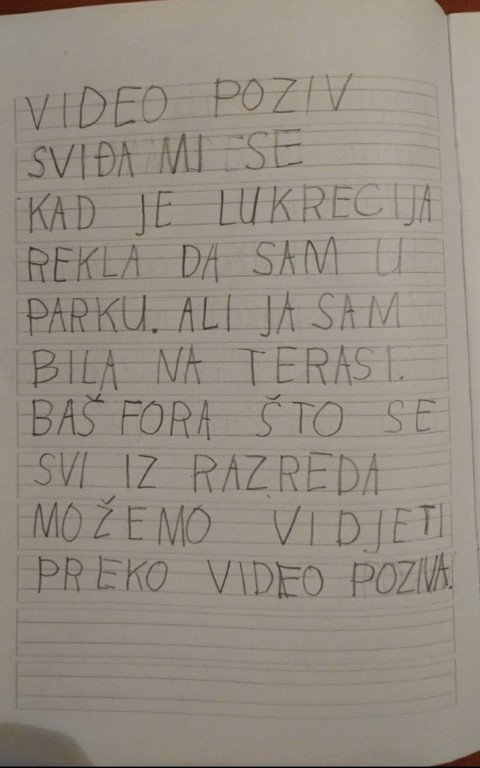 VIDEO POZIV
SVIĐA MI SE
KAD JE LUKRECIJA
REKLA DA SAM U
PARKU. ALI JA SAM
BILA NA TERASI.
BAŠ FORA ŠTO SE
SVI IZ RAZREDA
MOŽEMO VIDJETI
PREKO VIDEO POZIVA.